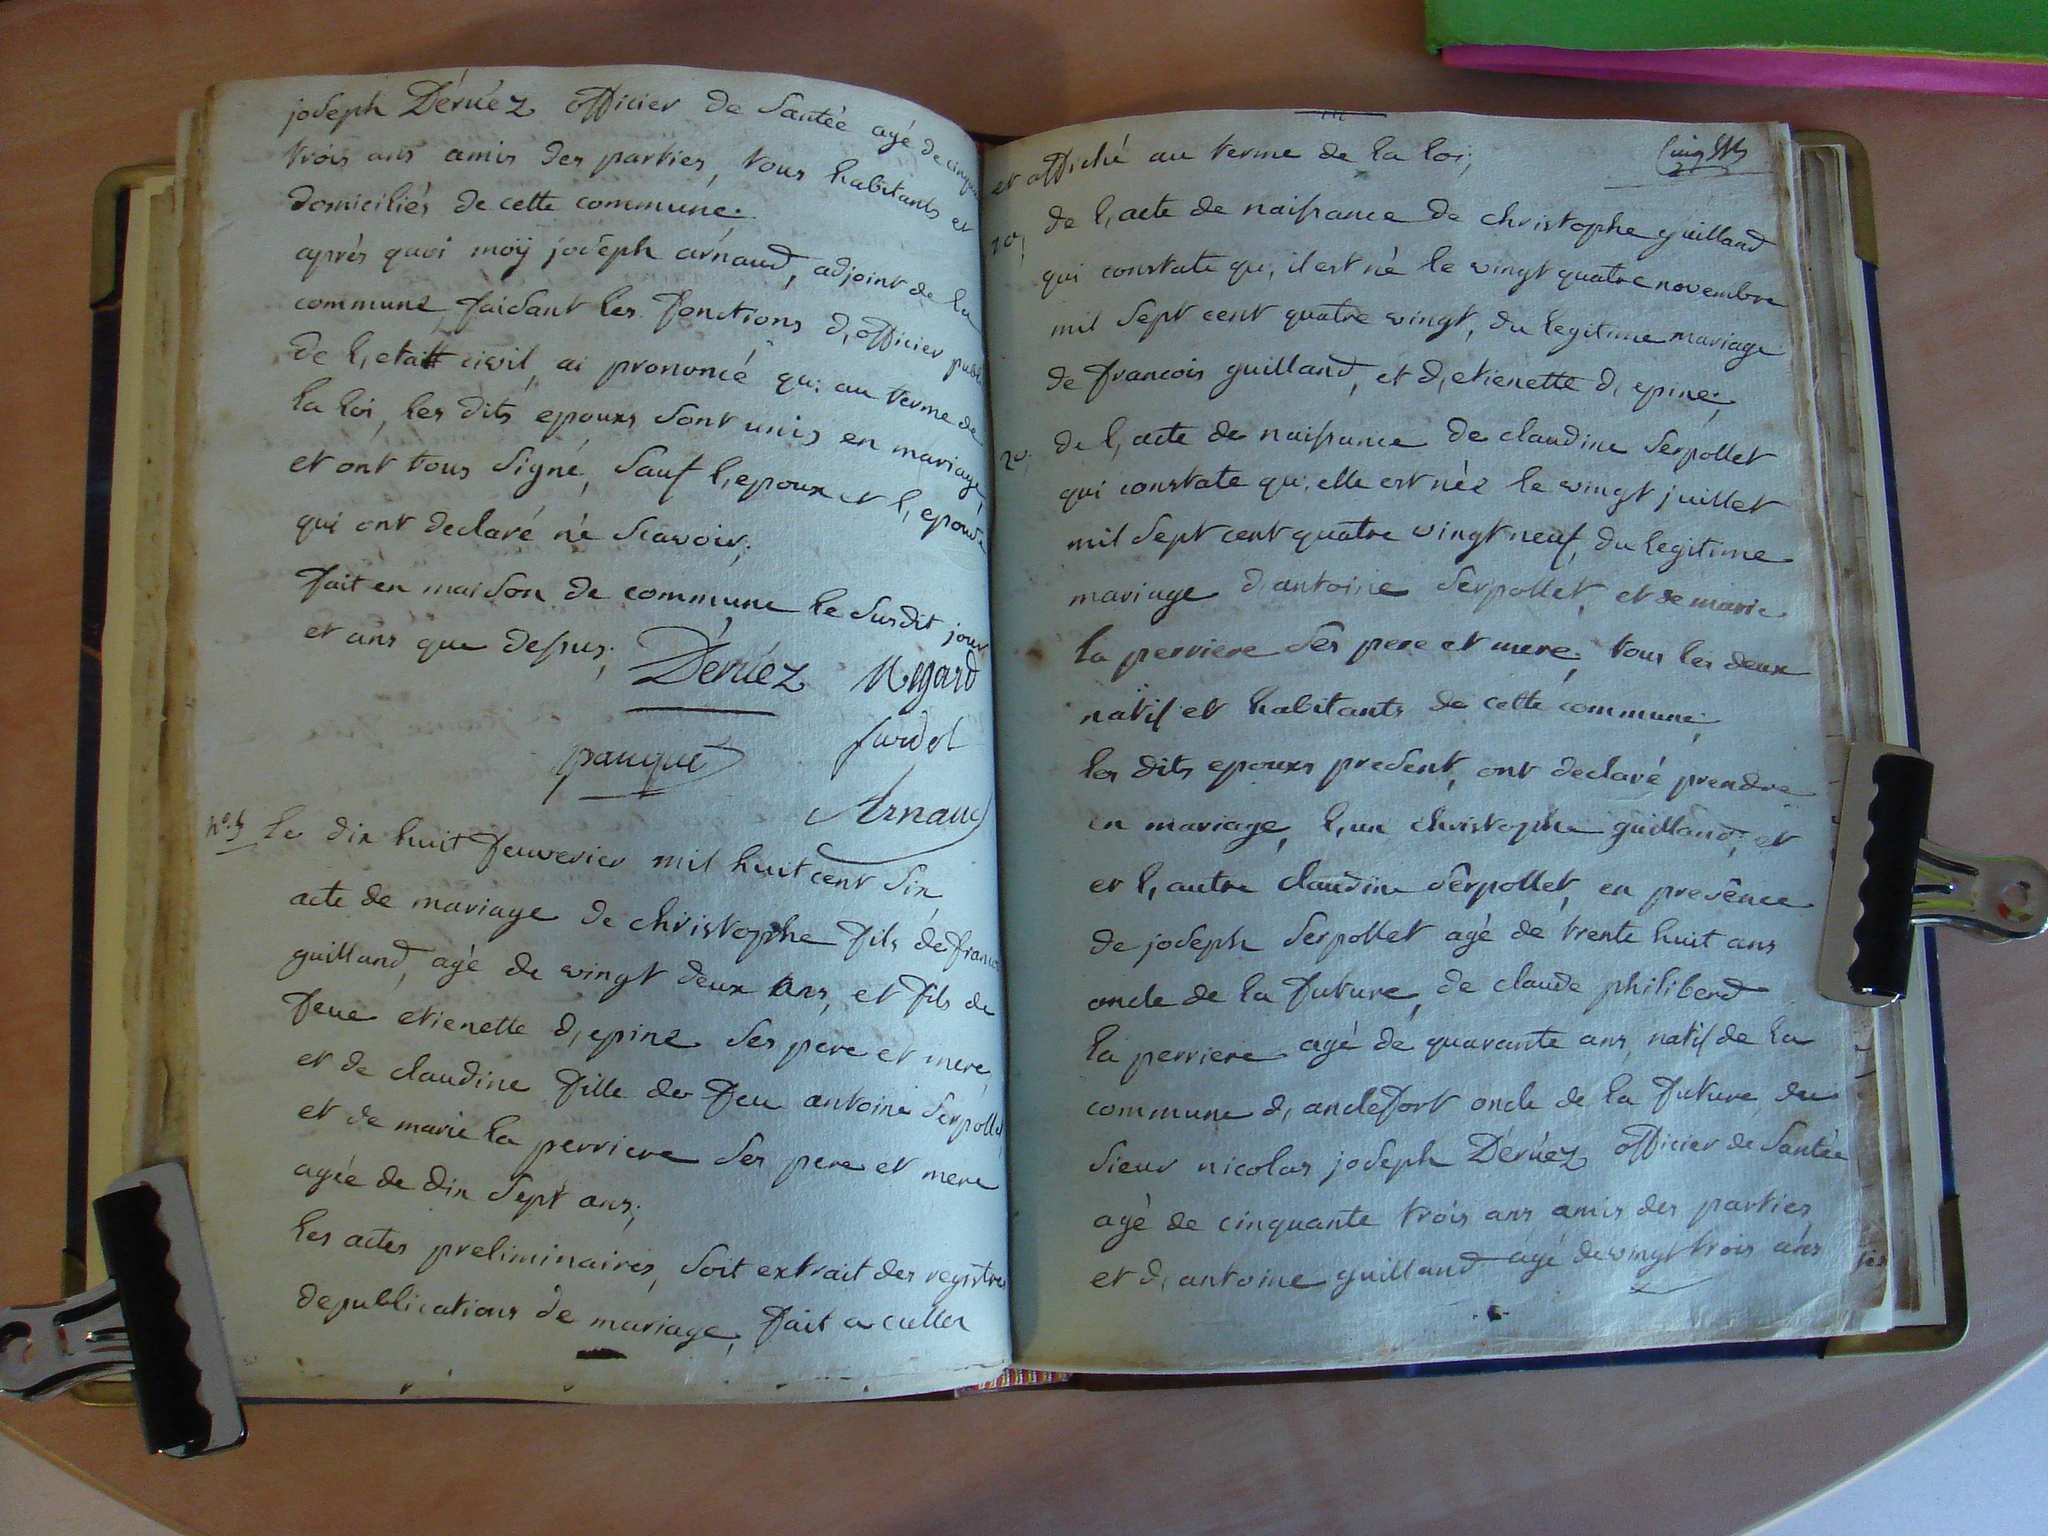 joseph Déruéz officier de Santée agé de cinquante
trois ans amis des parties, tous habitants et
domiciliés de cette commune.
après quoi moÿ joseph arnaud, adjoint de la
commune faisant les fonctions d, officier public
de l, etait civil, ai prononcé qu, au terme de
la loi, les dits epouxs sont unis en mariage,
et ont tous signé, sauf l, epoux et l, epouse
qui ont declaré né scavoir;
fait en maison de commune le susdit jour
et ans que dessus;
Déruéz Regard
pauque Jurdol
Arnaud
n°. 5 le dix huit feuverier mil huit cent six
acte de mariage de christophe fils de francois
guilland, agé de vingt deux ans, et fils de
feue etienette d, epine ses pere et mere,
et de claudine fille de feu antoine serpollet
et de marie la perriere ses pere et mere
agée de dix sept ans;
les actes preliminaires, soit extrait des registres
de publications de mariage, fait a culles
et affiché au terme de la loi;
1°, de l, acte de naissance de christophe guilland
qui constate qu, il est né le vingt quatre novembre
mil sept cent quatre vingt, du legitime mariage
de francois guilland, et d, etienette d, epine;
2°, de l, acte de naissance de claudine serpollet
qui constate qu, elle est née le vingt juillet
mil sept cent quatre vingt neuf, du legitime
mariage d, antoine serpollet, et de marie
la perriere ses pere et mere; tous les deux
natif et habitants de cette commune;
les dits epouxs present, ont declaré prendre
en mariage, l, un christophe guilland; et
et l, autre claudine serpollet, en presence
de joseph serpollet agé de trente huit ans
oncle de la future, de claude philiberd
la perriere agé de quarante ans, natif de la
commune d, anclefort oncle de la future, du
sieur nicolas joseph Déruéz officier de Santée
agé de cinquante trois ans amis des parties
et d, antoine guilland agé de vingt trois ans